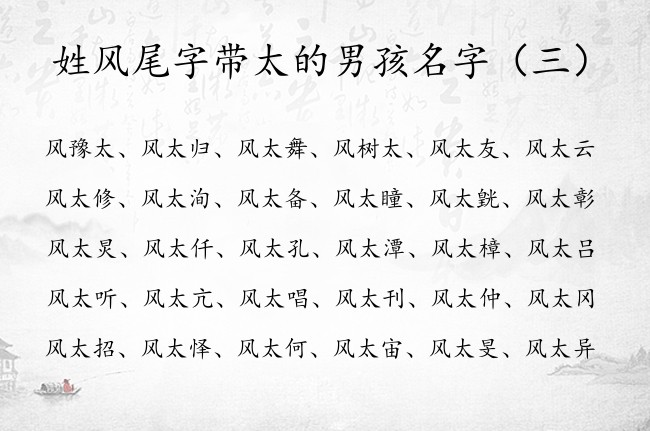 姓风尾字带太的男孩名字（三）
风豫太、风太归、风太舞、风树太、风太友、风太云
风太修、风太洵、风太备、风太瞳、风太毿、风太彰
风太炅、风太仟、风太孔、风太潭、风太樟、风太吕
风太听、风太亢、风太唱、风太刊、风太仲、风太冈
风太招、风太怿、风太何、风太宙、风太旻、风太异